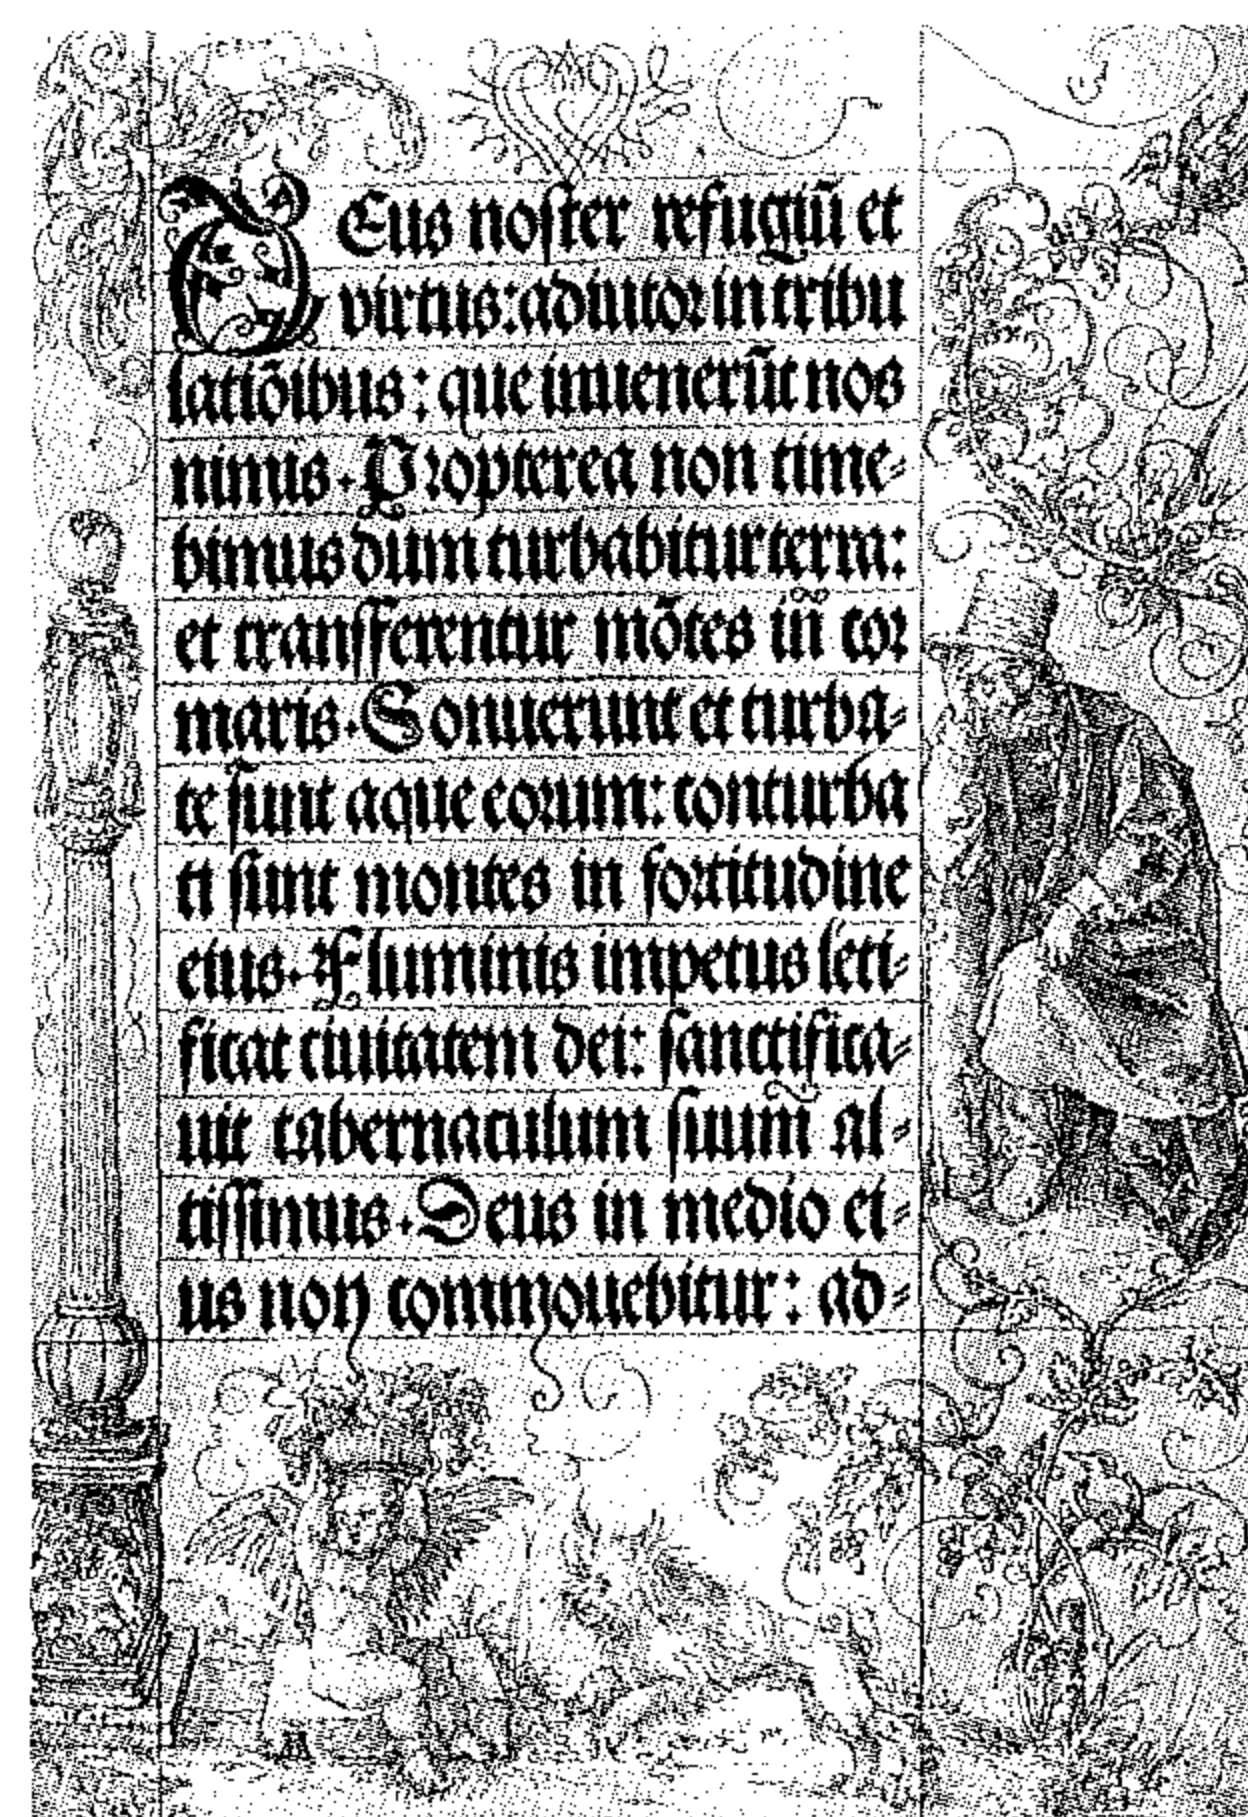 DEus noster refugiū et
virtus: adiutor in tribu
latiōibus: que inuenerūt nos
nimis. Propterea non time-
bimus dum turbabitur terra:
et transferentur mōtes in̄ cor
maris. Sonuerunt et turba-
te sunt aque eorum: conturba
ti sunt montes in fortitudine
eius. Fluminis impetus leti-
ficat ciuitatem dei: sanctifica-
uit tabernaculum suum̄ al-
tissimus. Deus in medio ei-
us non commouebitur: ad-